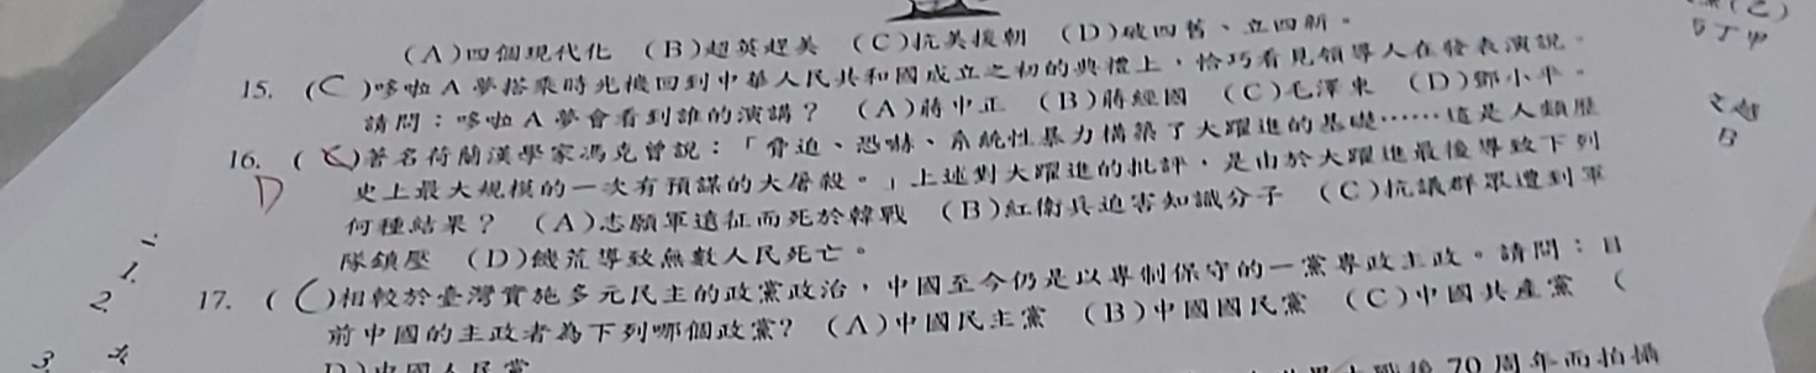 (A)四個現代化 (B)超英趕美 (C)抗美援朝 (D)破四舊、立四新。
15. (C)哆啦A夢搭乘時光機回到中華人民共和國成立之初的典禮上,恰巧看見領導人在發表演說。
請問:哆啦A夢會看到誰的演講? (A)蔣中正 (B)蔣經國 (C)毛澤東 (D)鄧小平。
16. (C)著名荷蘭漢學家馮克曾說:「脅迫、恐嚇、系統性暴力構築了大躍進的基礎……這是人類歷
D
史上最大規模的一次有預謀的大屠殺。」上述對大躍進的批評,是由於大躍進最後導致下列
何種結果? (A)志願軍遠征而死於韓戰 (B)紅衛兵迫害知識分子 (C)抗議群眾遭到軍
隊鎮壓 (D)饑荒導致無數人民死亡。
17. (C)相較於臺灣實施多元民主的政黨政治,中國至今仍是以專制保守的一黨專政主政。請問:目
前中國的主政者為下列哪個政黨? (A)中國民主黨 (B)中國國民黨 (C)中國共產黨 (
D)中國人民黨
70周年而拍攝
(乙)
丁甲
B
一
1.
2.
3.